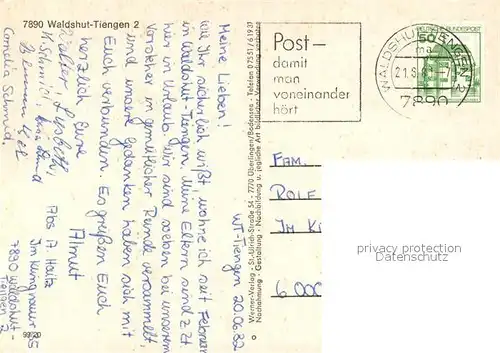 7890 Waldshut-Tiengen 2
WT-Tiengen 20.06.82
Meine Lieben!
Wie Ihr sicherlich wißt, wohne ich seit Februar
in Waldshut-Tiengen, Meine Eltern sind z. Zt.
hier in Urlaub. Wir sind soeben bei unserem
Vorsteher in gemütlicher Runde versammelt,
und unsere Gedanken haben sich mit
Euch verbunden. Es grüßen Euch
herzlich Eure
Almut
Walter, Lisbeth,
K. Schmid,
Cornelia Schmid.
Abs A. Haitz
7890 Waldshut-
Tiengen 2
99/20
Werner-Verlag · St.-Ulrich-Straße 54 · 7770 Überlingen/Bodensee · Telefon 07551/61937
Nachahmung · Gestaltung · Nachbildung u. jegliche Art bildlicher Verwendung verboten
Post –
damit
man
voneinander
hört
WALDSHUT-TIENGEN 2
mb
21.6.82
7890
DEUTSCHE BUNDESPOST
50
FAM.
ROLF
IM K
6000
privacy protection
Datenschutz